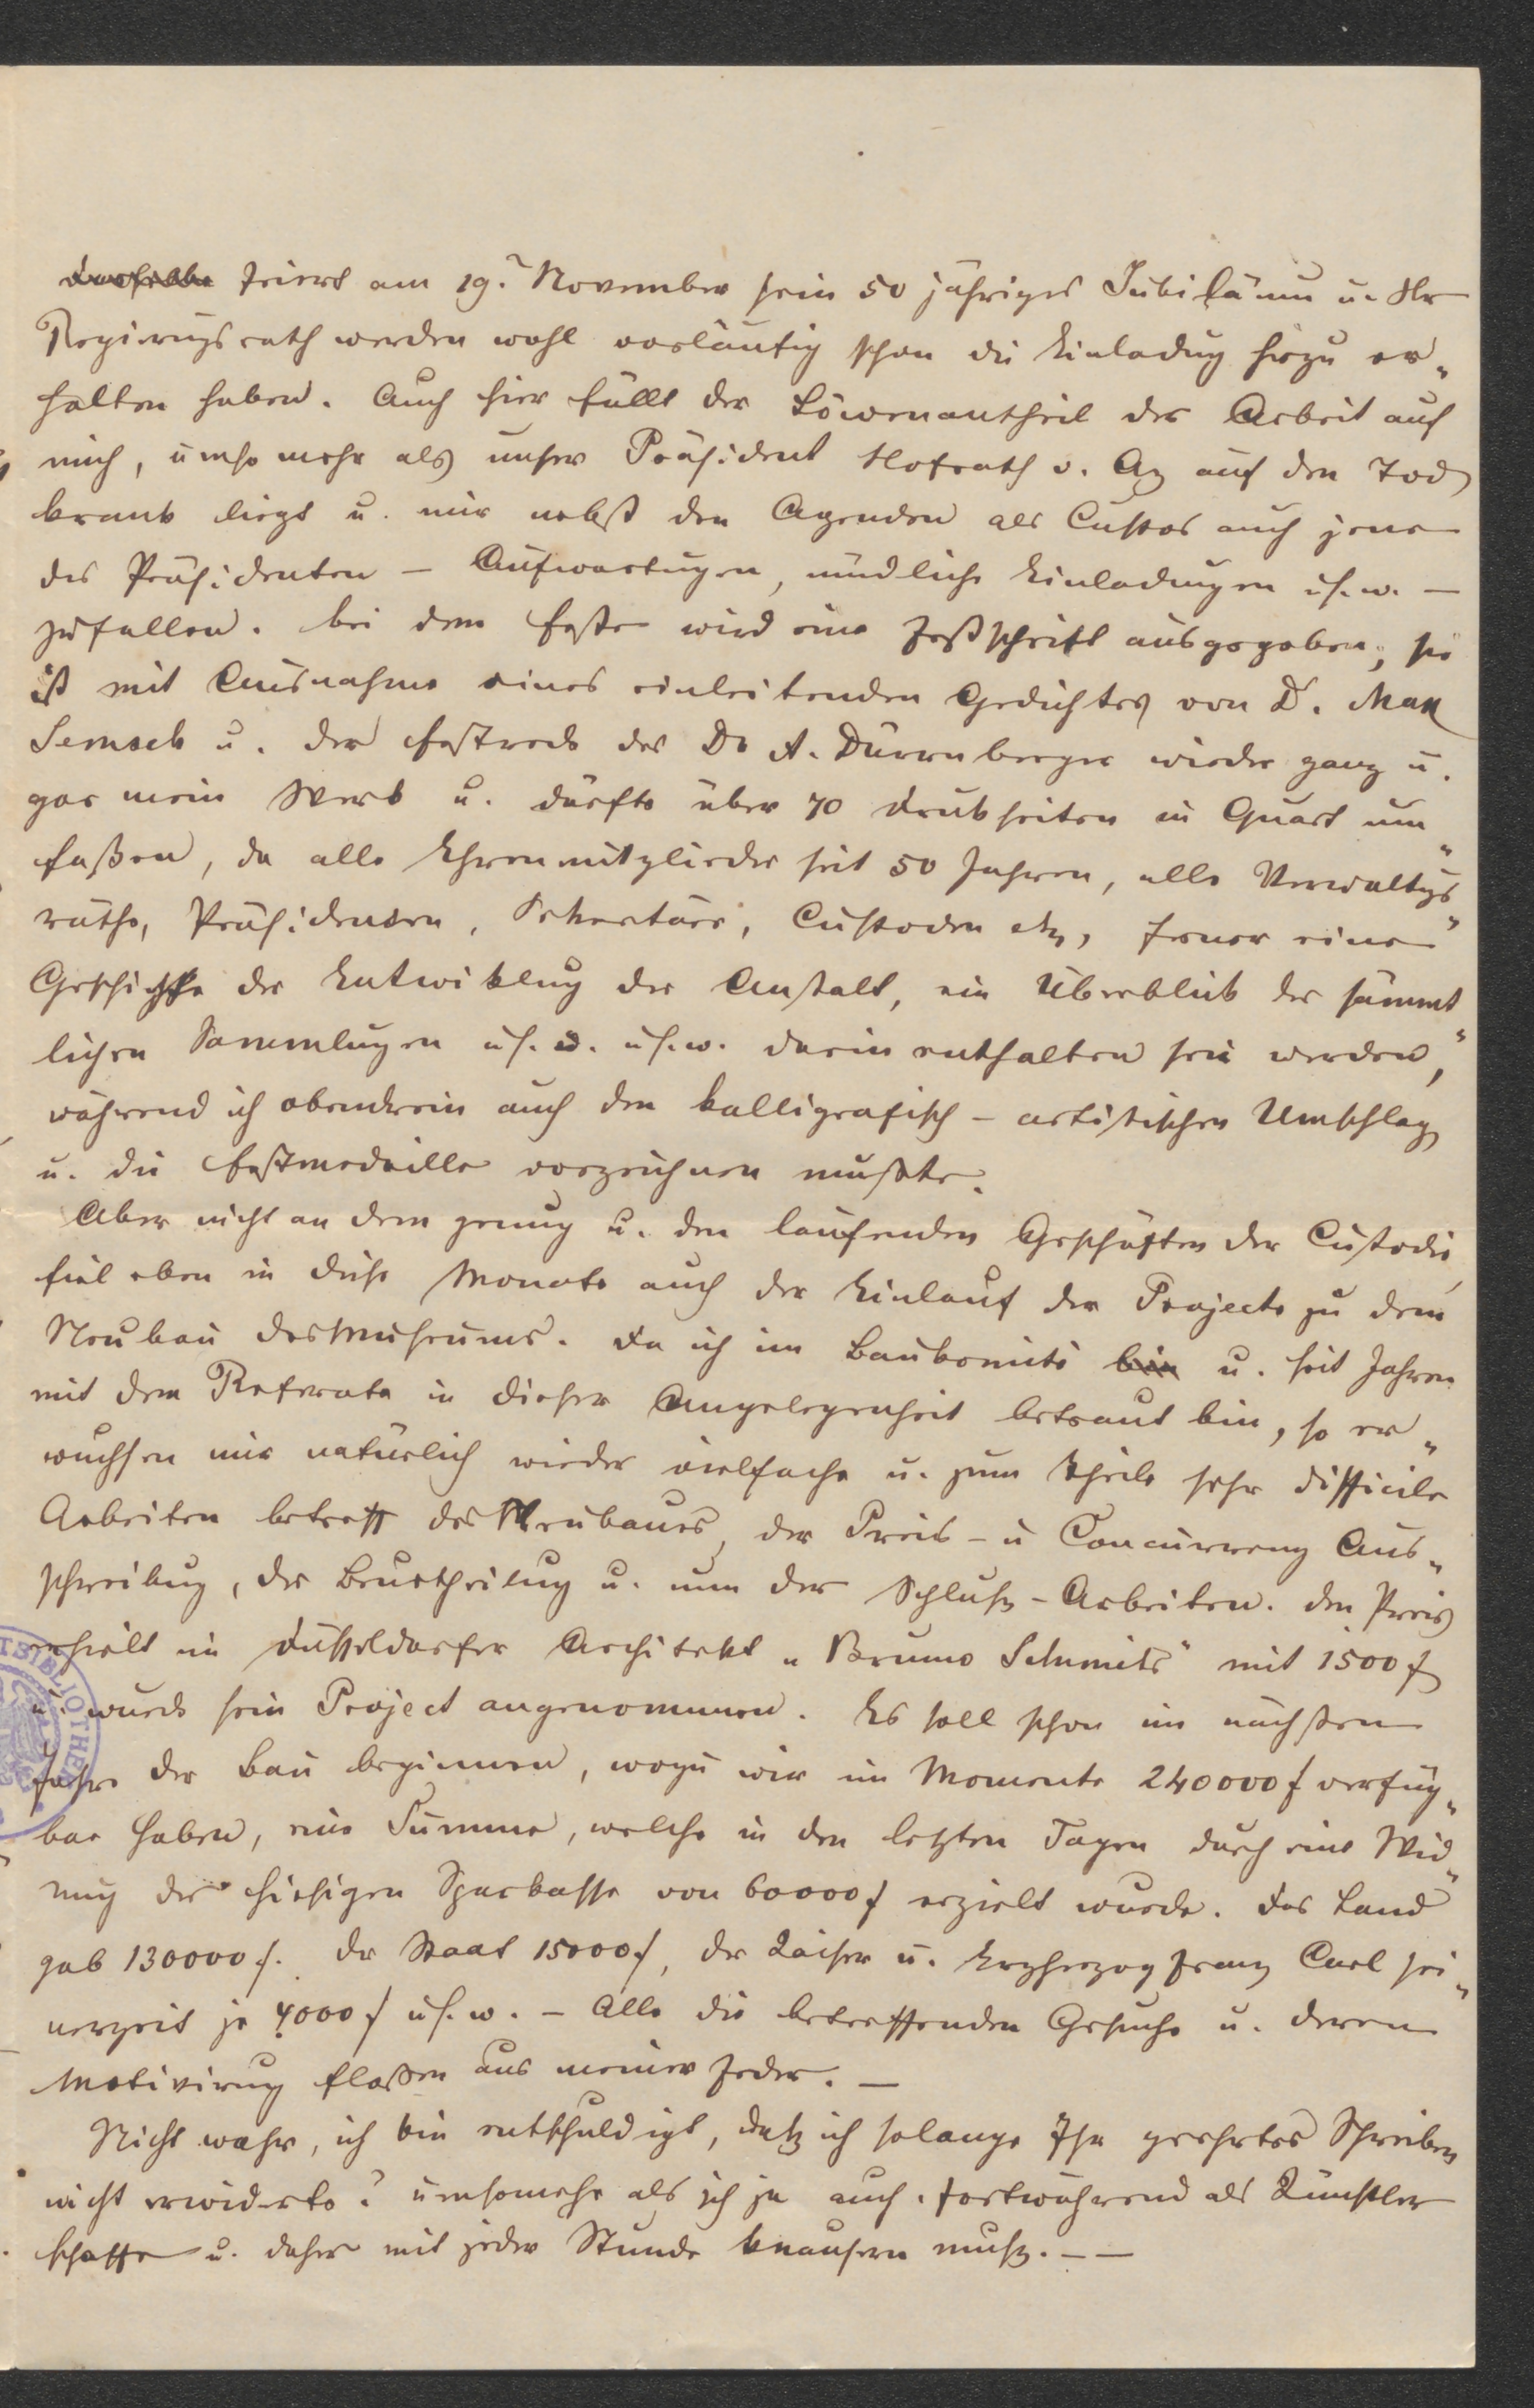 dasselbe feiert am 19. November sein 50 jähriges Jubiläum u. Hr
Regierungsrath werden wohl vorläufig schon die Einladung hiezu er„
halten haben. Auch hier fällt der Löwenantheil der Arbeit auf
mich, umso mehr als unser Präsident Hofrath v. Az auf den Tod
krank liegt u. mir nebst den Agenden als Custos auch jene
des Präsidenten – Aufwartungen, mündliche Einladungen u.s.w. –
zufallen. Bei dem Feste wird eine Festschrift ausgegeben; sie
ist mit Ausnahme eines einleitenden Gedichtes von D. Max
Semsch u. der Festrede des Dr A. Dürrnberger wieder ganz u.
gar mein Werk u. dürfte über 70 Druckseiten in Quart um„
faßen, da alle Ehrenmitglieder seit 50 Jahren, alle Verwaltgs„
räthe, Präsidenten, Sekretäre, Custoden etz, ferner eine
Geschichte der Entwiklug der Anstalt, ein Überblick der sämmt„
lichen Sammlugen u.s.w. u.s.w. darin enthalten sein werden,
während ich obendrein auch den kalligrafisch – artistischen Umschlag
u. die Festmedaille vorzeichnen mußte.
Aber nicht an dem genug u. den laufenden Geschäften der Custodie,
fiel eben in diese Monate auch der Einlauf der Projecte zu dem
Neubau des Museums. Da ich im Baukomité bin u. seit Jahren
mit dem Referate in dieser Angelegenheit betraut bin, so er„
wuchsen mir natürlich wieder vielfache u. zum Theile sehr difficile
Arbeiten betreff des Neubaues, der Preis – u Concurrenz Aus„
schreibug, der Beurtheilug u. nun der Schluß – Arbeiten. Den Preis
erhielt ein Düsseldorfer Architekt „Bruno Schmits“ mit 1500 f
u. wurde sein Project angenommen. Es soll schon im nächsten
Jahre der Bau beginnen, wozu wir im Momente 240000 f verfüg„
bar haben, eine Summe, welche in den letzten Tagen durch eine Wid„
mug der hiesigen Sparkasse von 60000 f erzielt wurde. Das Land
gab 130000 f. der Staat 15000 f, der Kaiser u. Erzherzog Franz Carl sei„
nerzeit je 4000 f u.s.w. – Alle die betreffenden Gesuche u. deren
Motivirug floßen aus meiner Feder. –
Nicht wahr, ich bin entschuldigt, daß ich solange Ihr geehrtes Schreiben
nicht erwiderte? umsomehr als ich ja auch fortwährend als Künstler
schaffe u. daher mit jeder Stunde knausern muß. – –